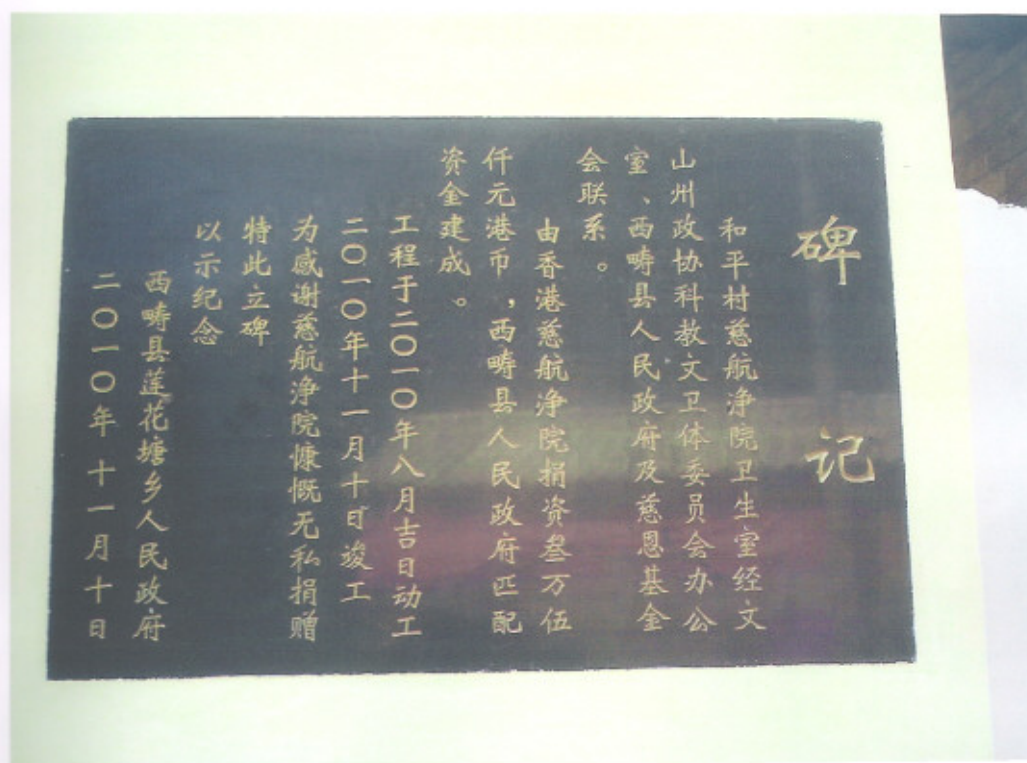 碑记
和平村慈航净院卫生室经文
山州政协科教文卫体委员会办公
室、西畴县人民政府及慈恩基金
会联系。
由香港慈航净院捐资叁万伍
仟元港币，西畴县人民政府匹配
资金建成。
工程于二〇一〇年八月吉日动工
二〇一〇年十一月十日竣工
为感谢慈航净院慷慨无私捐赠
特此立碑
以示纪念
西畴县莲花塘乡人民政府
二〇一〇年十一月十日